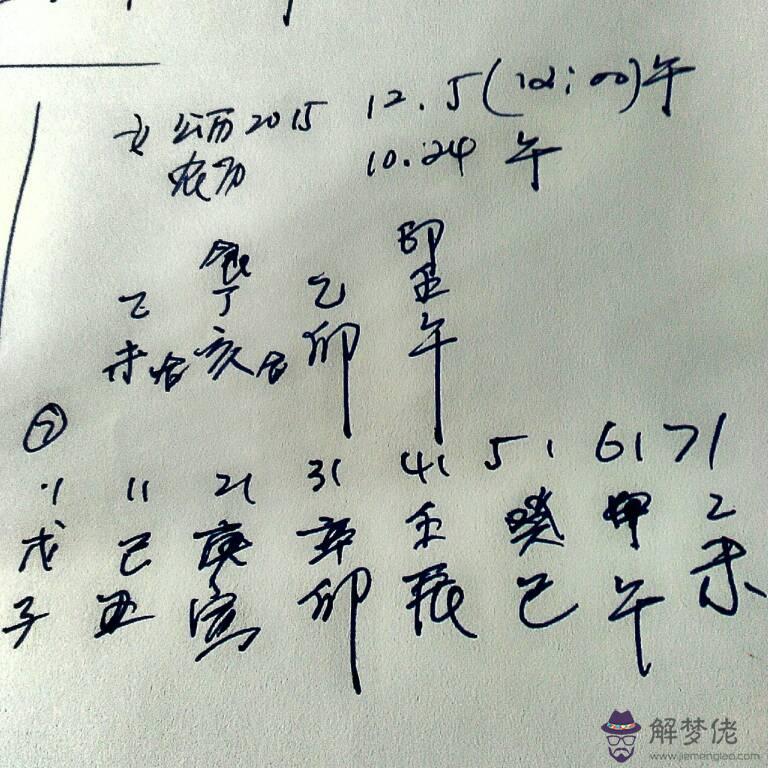 女 公历 2015 12.5 (12:00) 午
农历 10.24 午
食 印
乙 丁 乙 壬
未 合 亥 合 卯 午
②
1 11 21 31 41 51 61 71
戊 己 庚 辛 壬 癸 甲 乙
子 丑 寅 卯 辰 巳 午 未
解梦佬
www.jiemenglao.com